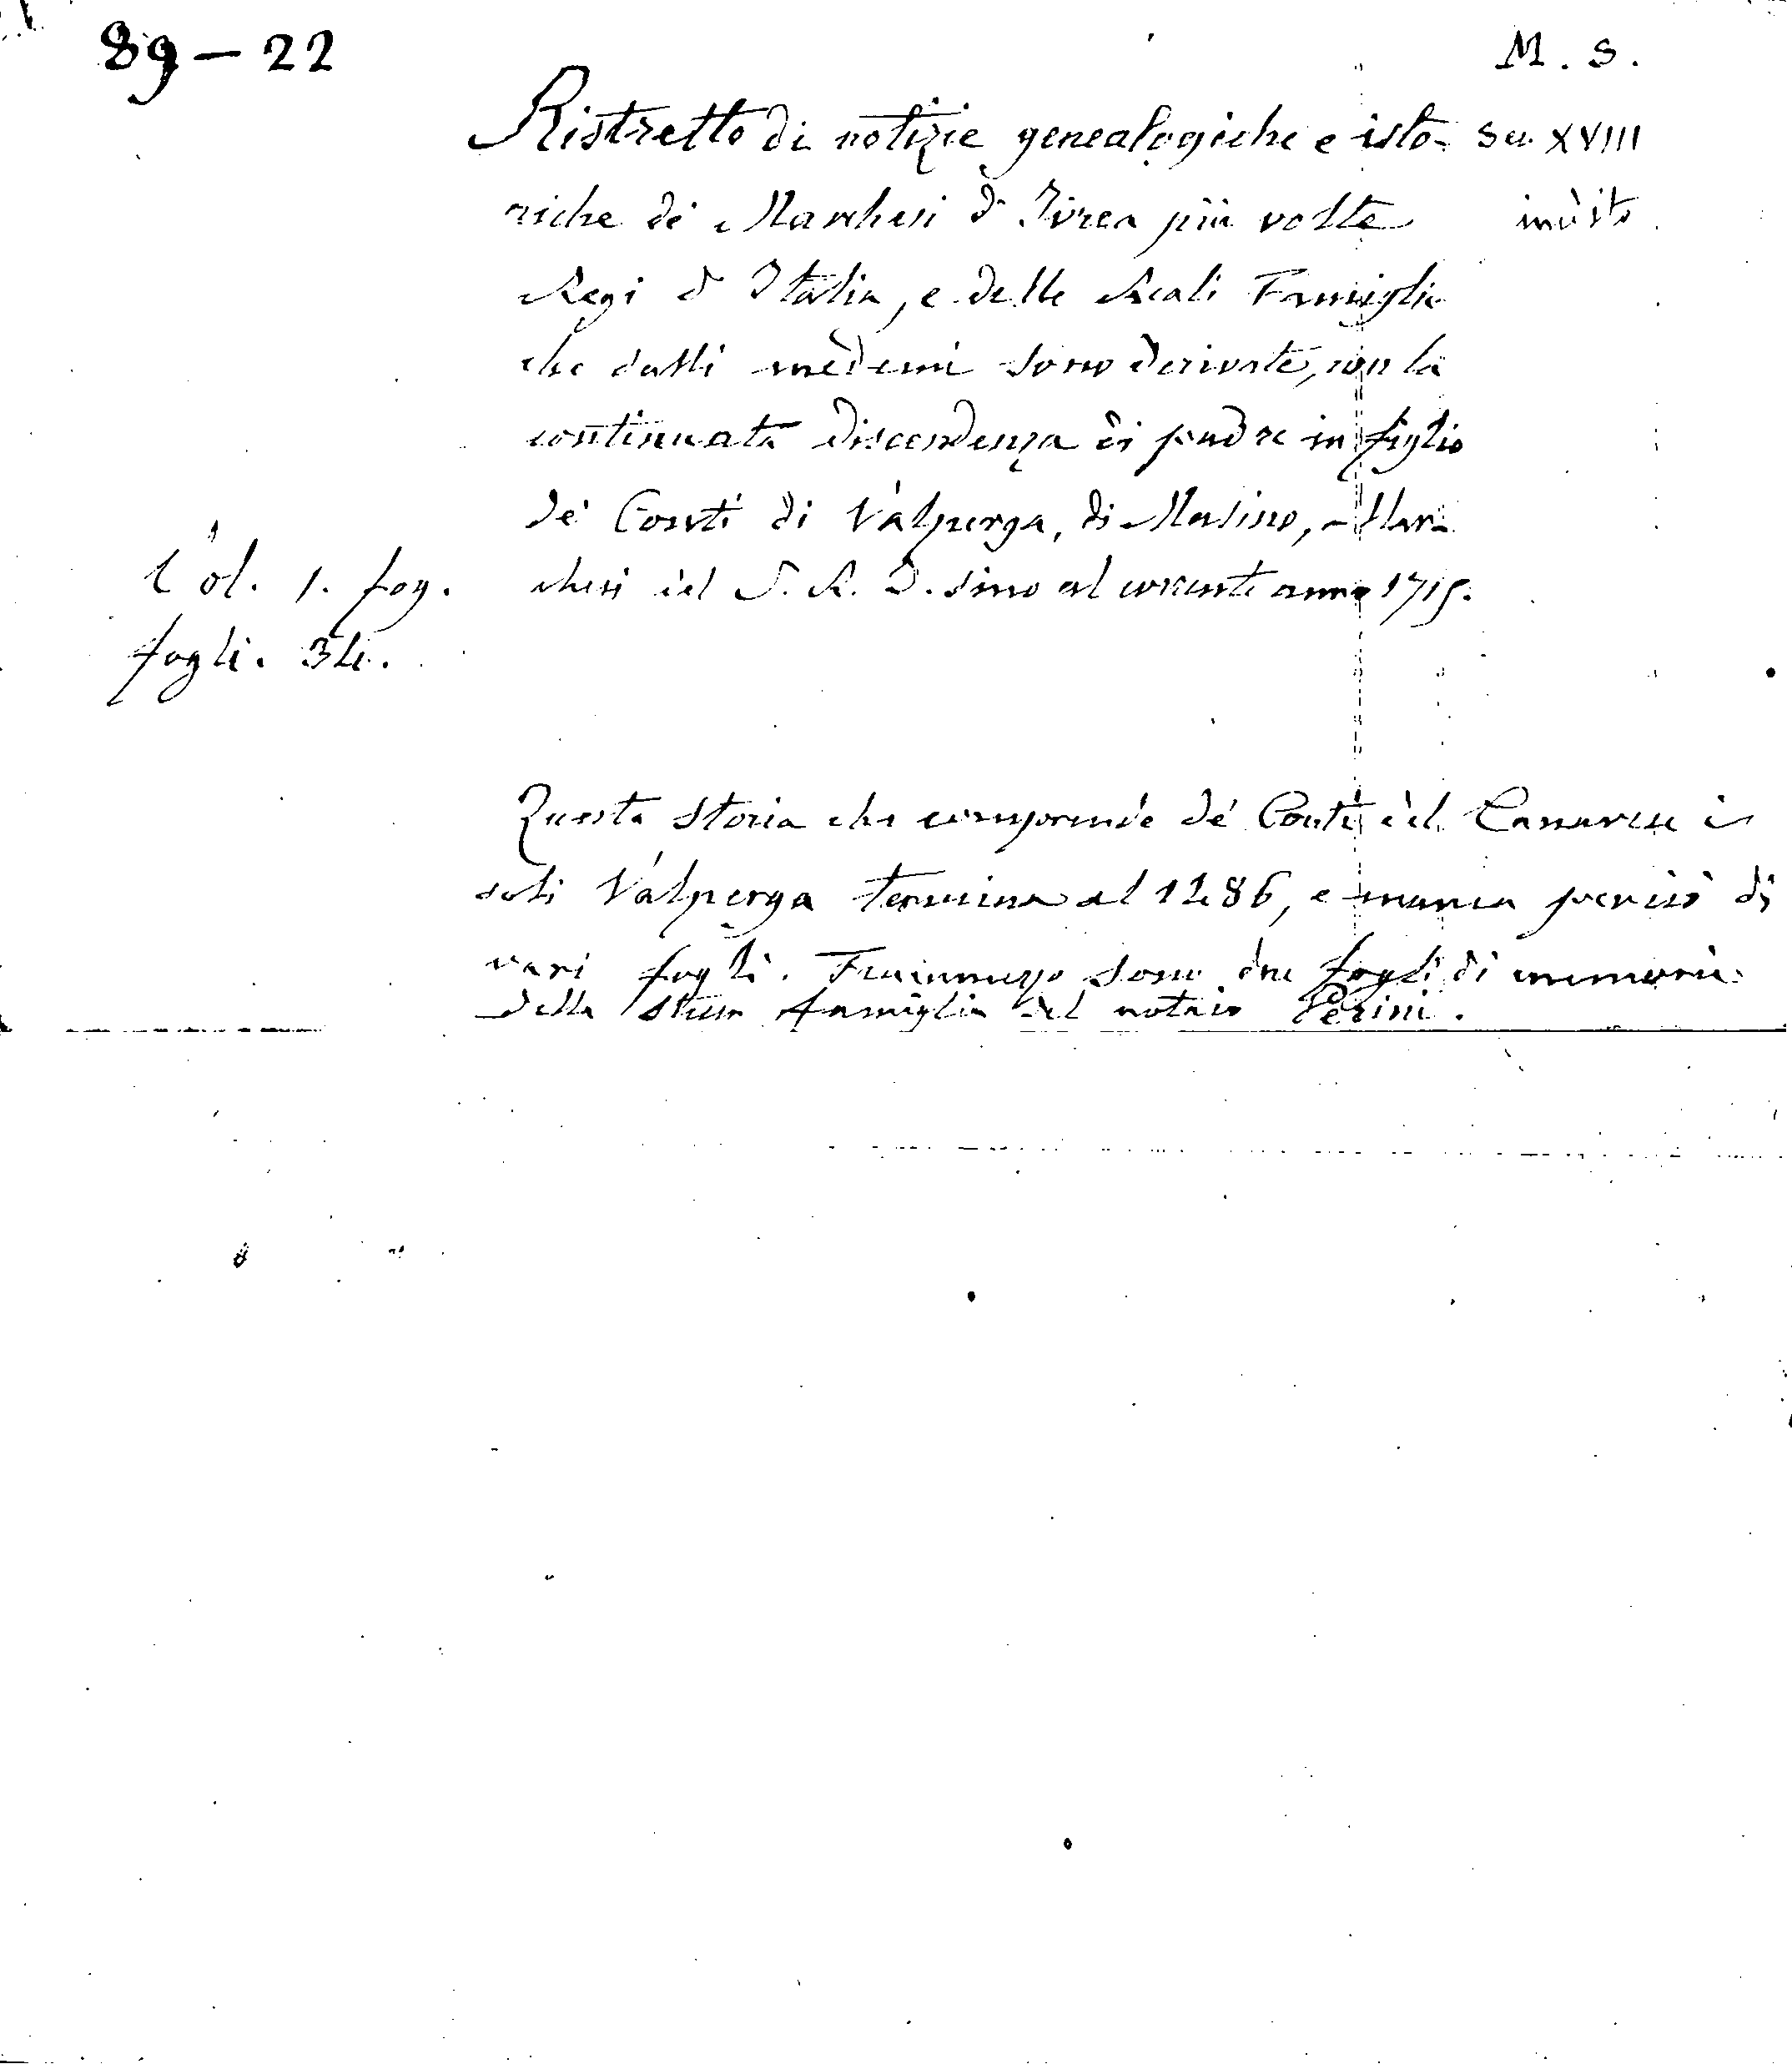 89 — 22
M. S.
Ristretto di notizie genealogiche e isto-
Sec. XVIII
riche de' Marchesi d' Ivrea più volte
inedito
Regi d' Italia, e delle Reali Famiglie
che dalli medemi sono derivate, con la
continuata discendenza di padre in figlio
de' Conti di Valperga, di Masino, Mar-
Vol. 1. fog.
chesi del S. R. I. sino al corrente anno 1715.
fogli. 34.
Questa storia che comprende de' Conti del Canavese i
soli Valperga termina al 1486, e manca perciò di
vari fogli. Frammezzo sono due fogli di memorie
della stessa famiglia del notaio Perini.